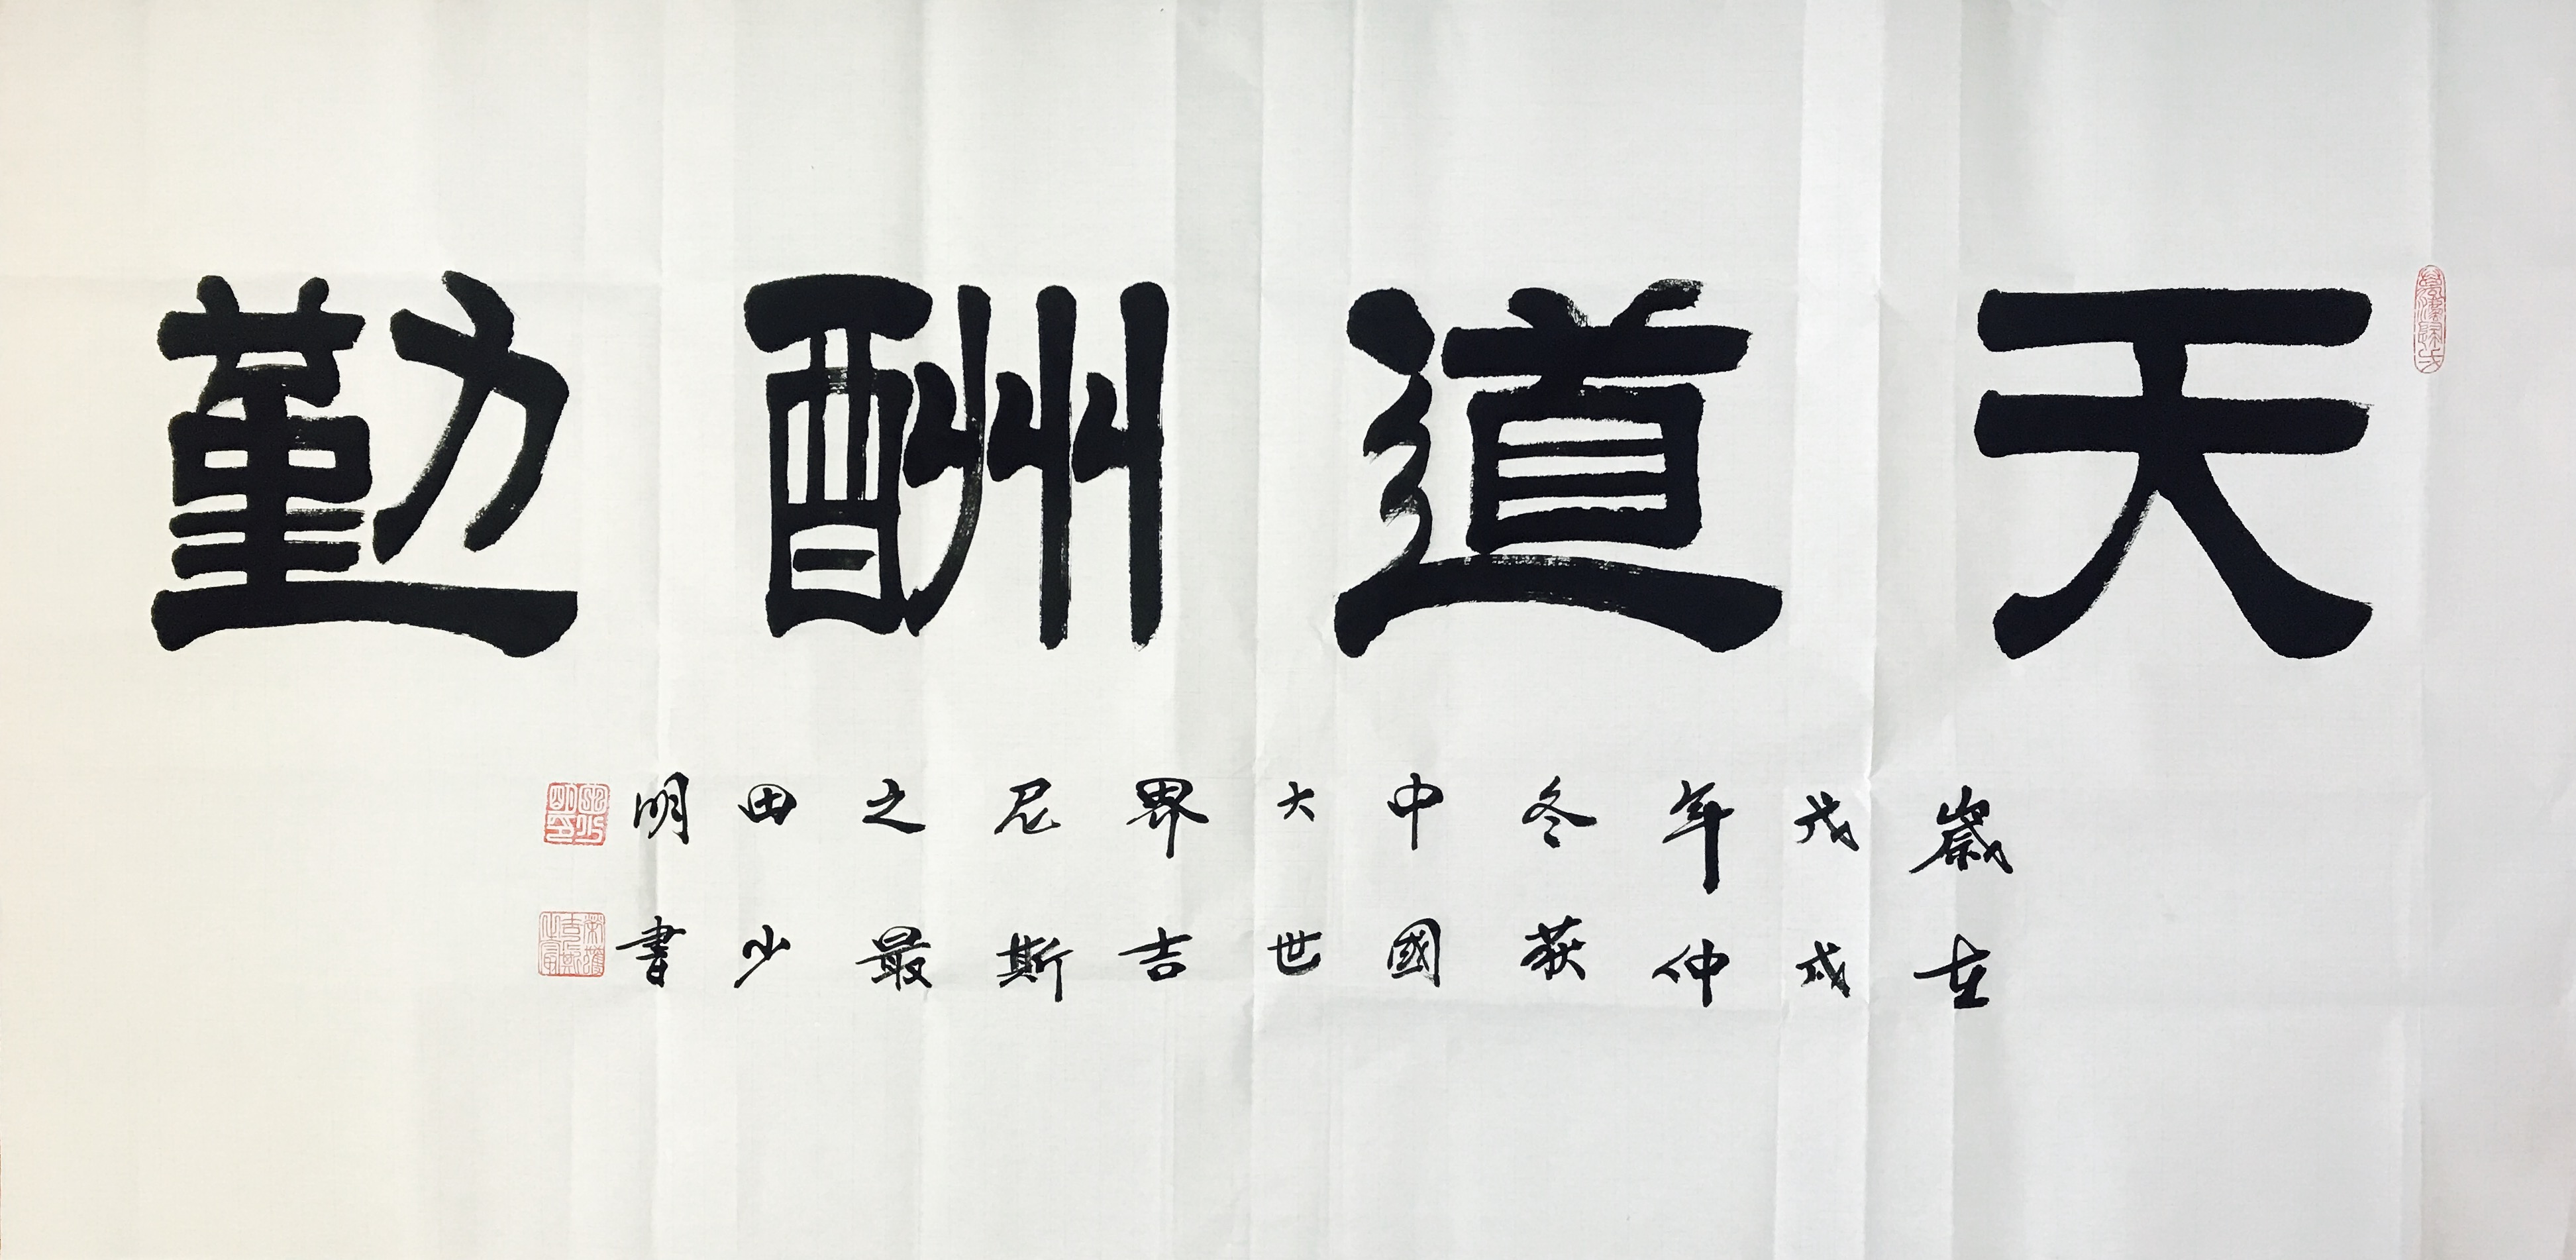 天道酬勤
歲在
戊戌
年仲
冬荻
中國
大世
界吉
尼斯
之最
田少
明書